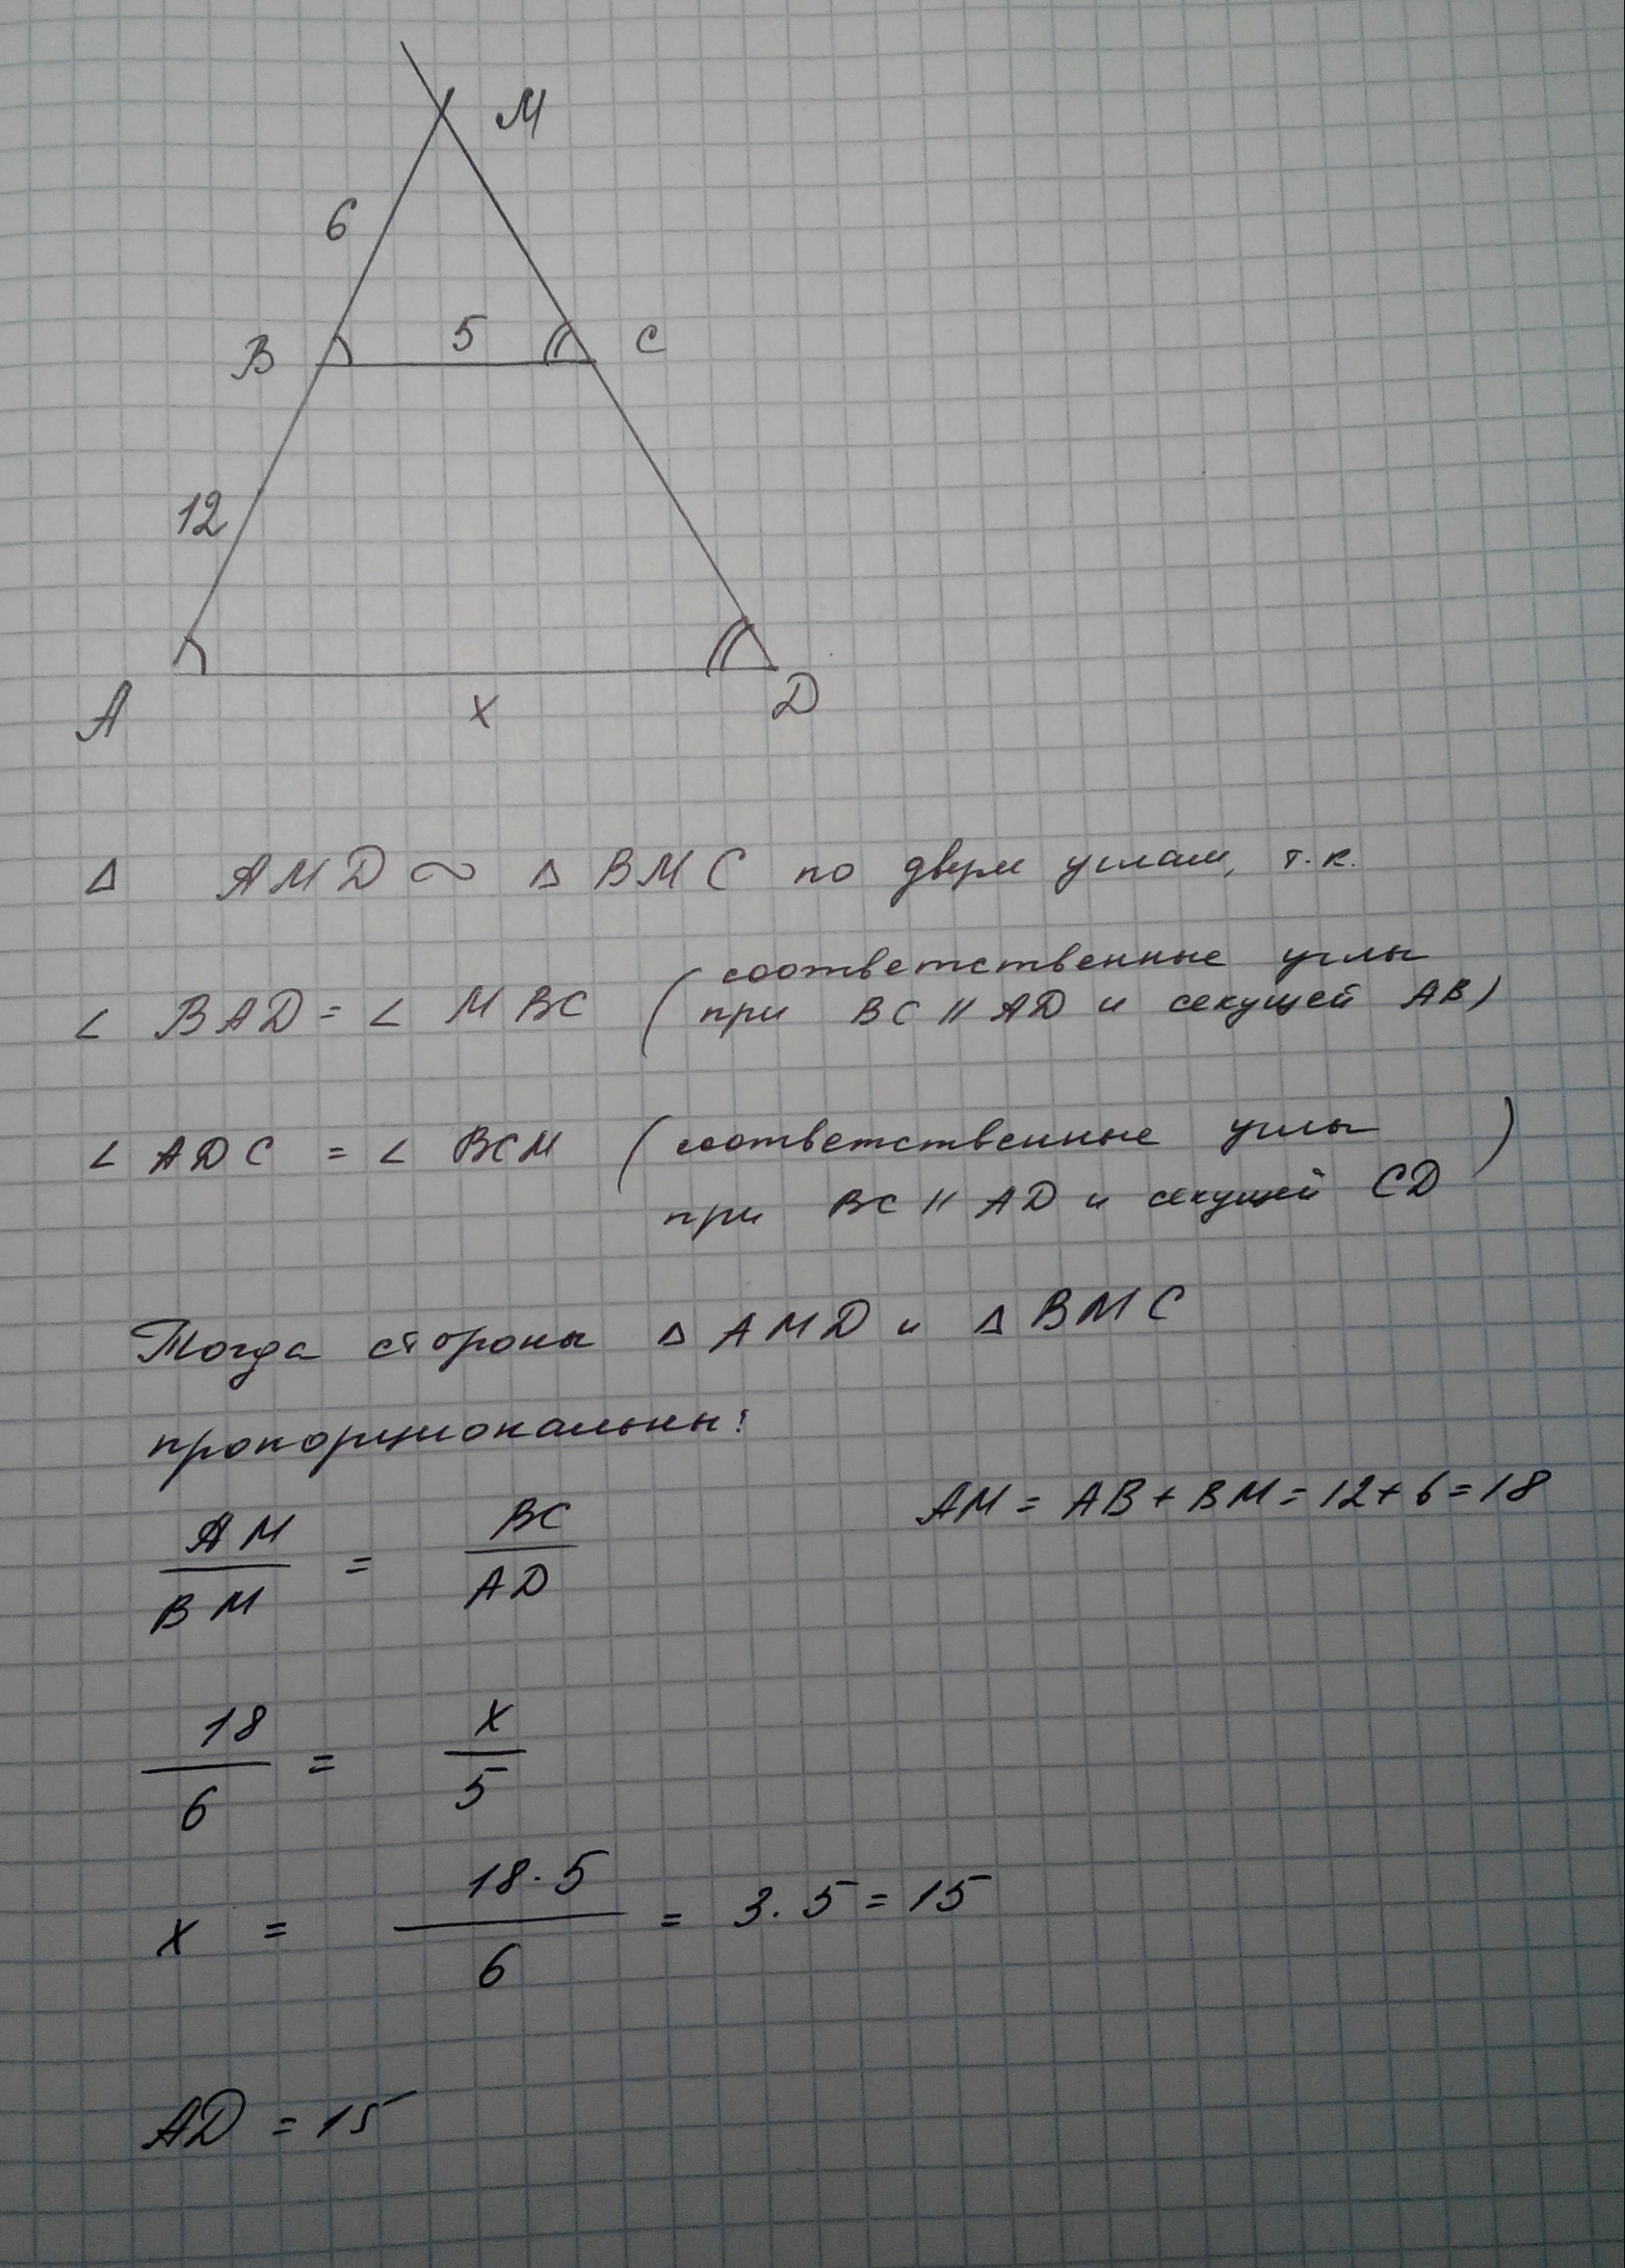 M
6
B
5
C
12
A
x
D
Δ AMD ∾ Δ BMC по двум углам, т.к.
∠ BAD = ∠ MBC (соответственные углы
при BC || AD и секущей AB)
∠ ADC = ∠ BCM (соответственные углы
при BC || AD и секущей CD)
Тогда стороны Δ AMD и Δ BMC
пропорциональны:
AM = AB + BM = 12 + 6 = 18
AM/BM = BC/AD
18/6 = x/5
x = 18·5/6 = 3·5 = 15
AD = 15